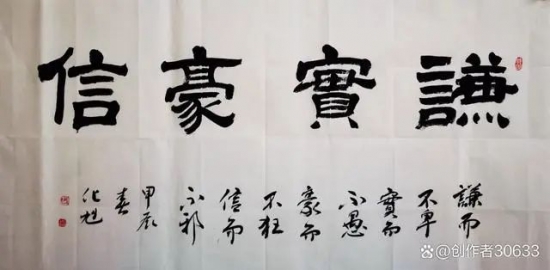 謙實豪信
謙而
不卑
實而
不愚
豪而
不狂
信而
不邪
甲辰
春
化
@创作者30633